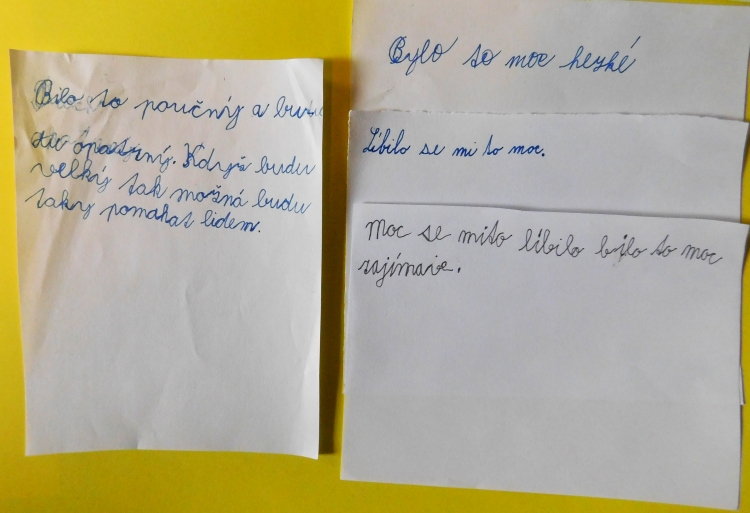 Bilo to poučný a budu
víc opatrný. Když budu
velký tak možná budu
taky pomahat lidem.
Bylo to moc hezké
Líbilo se mi to moc.
Moc se mito líbilo bylo to moc
zajímavé.